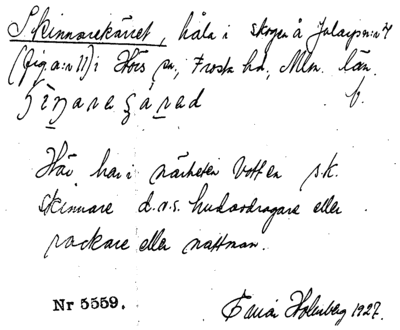 Skinnarekärret, håla i skogen å Jularps n:r 7
(fig a:n 11) i Hörs sn., Frosta hd, Mlm. län.
f.
Här har i närheten bott en s.k.
skinnare d.v.s. hudavdragare eller
rackare eller nattman.
Nr 5559.
Holmberg 1927.